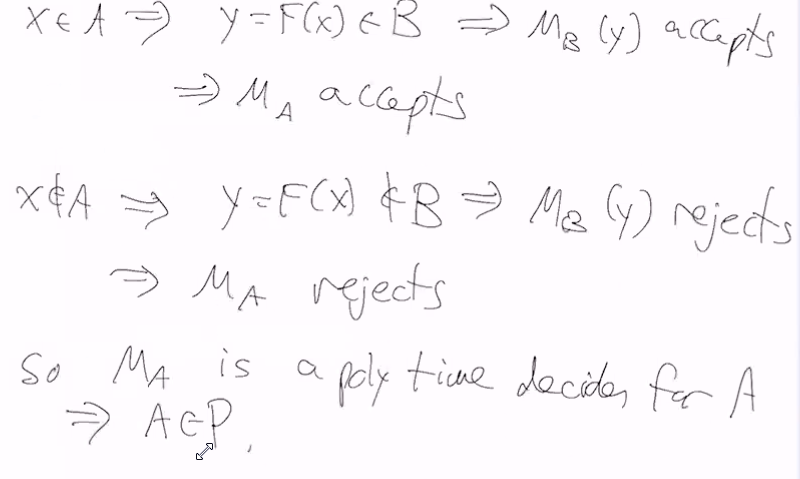 x ∈ A ⇒ y = F(x) ∈ B ⇒ M_B (y) accepts
⇒ M_A accepts
x ∉ A ⇒ y = F(x) ∉ B ⇒ M_B (y) rejects
⇒ M_A rejects
So M_A is a poly time decider for A
⇒ A ∈ P.